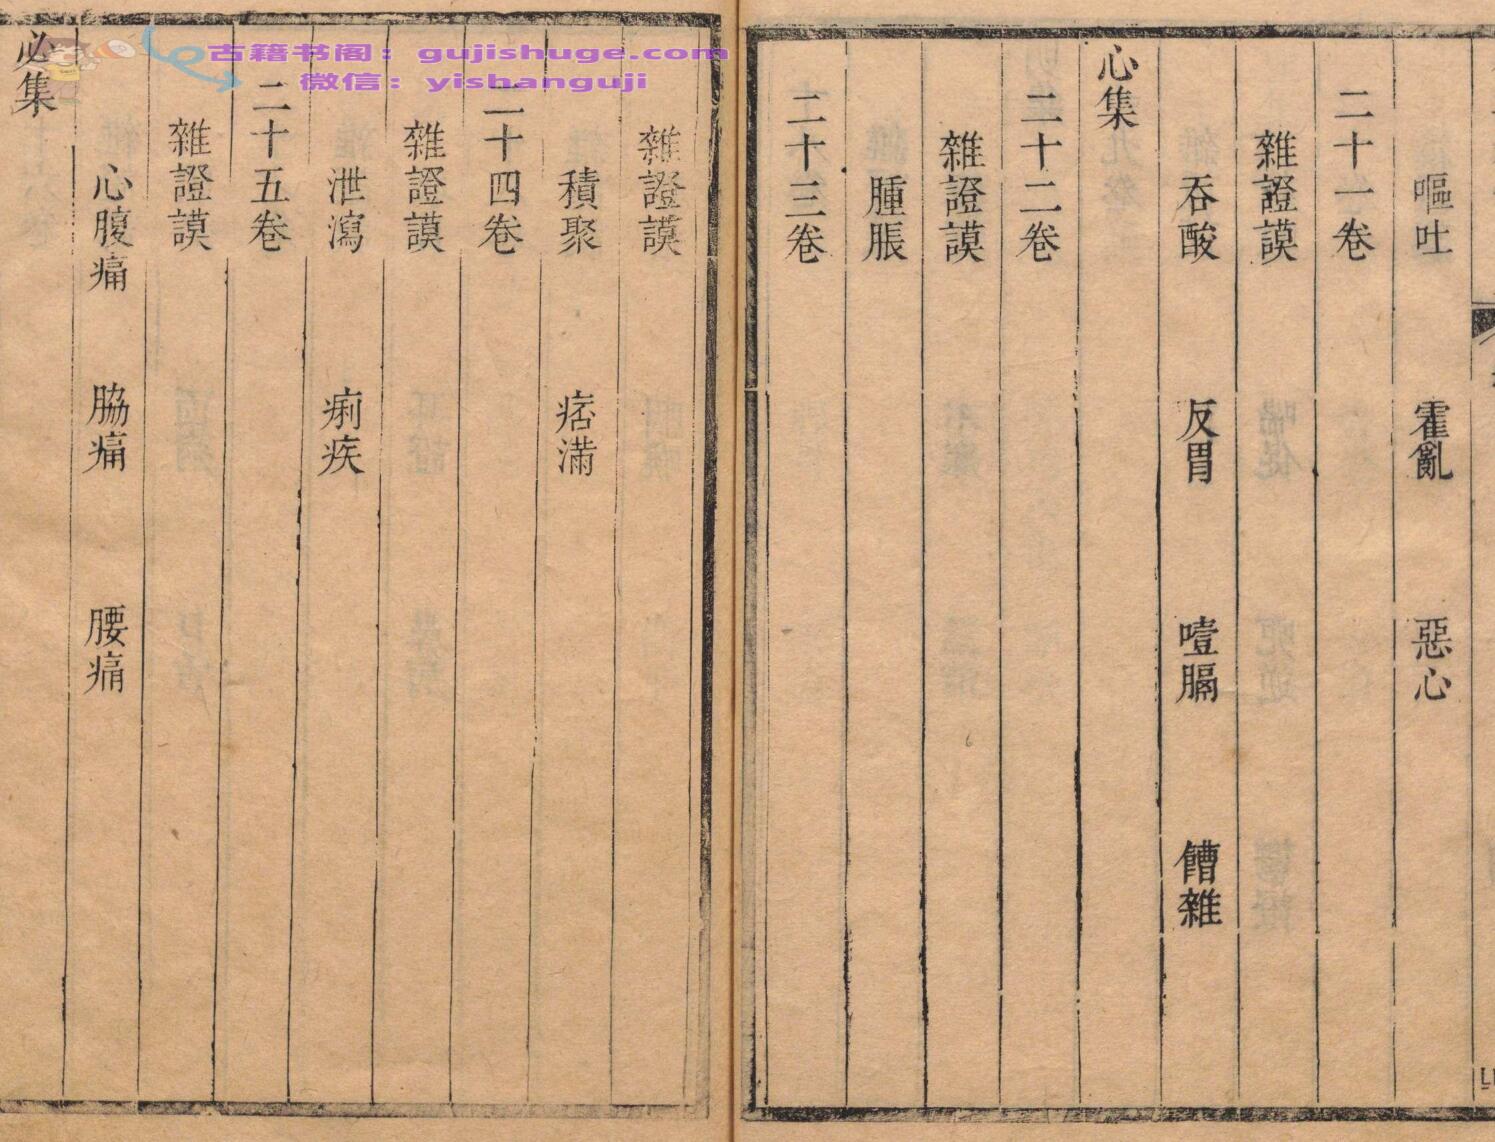 嘔吐 霍亂 惡心
二十一卷
雜證謨
吞酸 反胃 噎膈 饋雜
心集
二十二卷
雜證謨
腫脹
二十三卷
雜證謨
積聚 痞滿
二十四卷
雜證謨
泄瀉 痢疾
二十五卷
雜證謨
心腹痛 脇痛 腰痛
必集
古籍书阁：gujishuge.com
微信：yishanguji